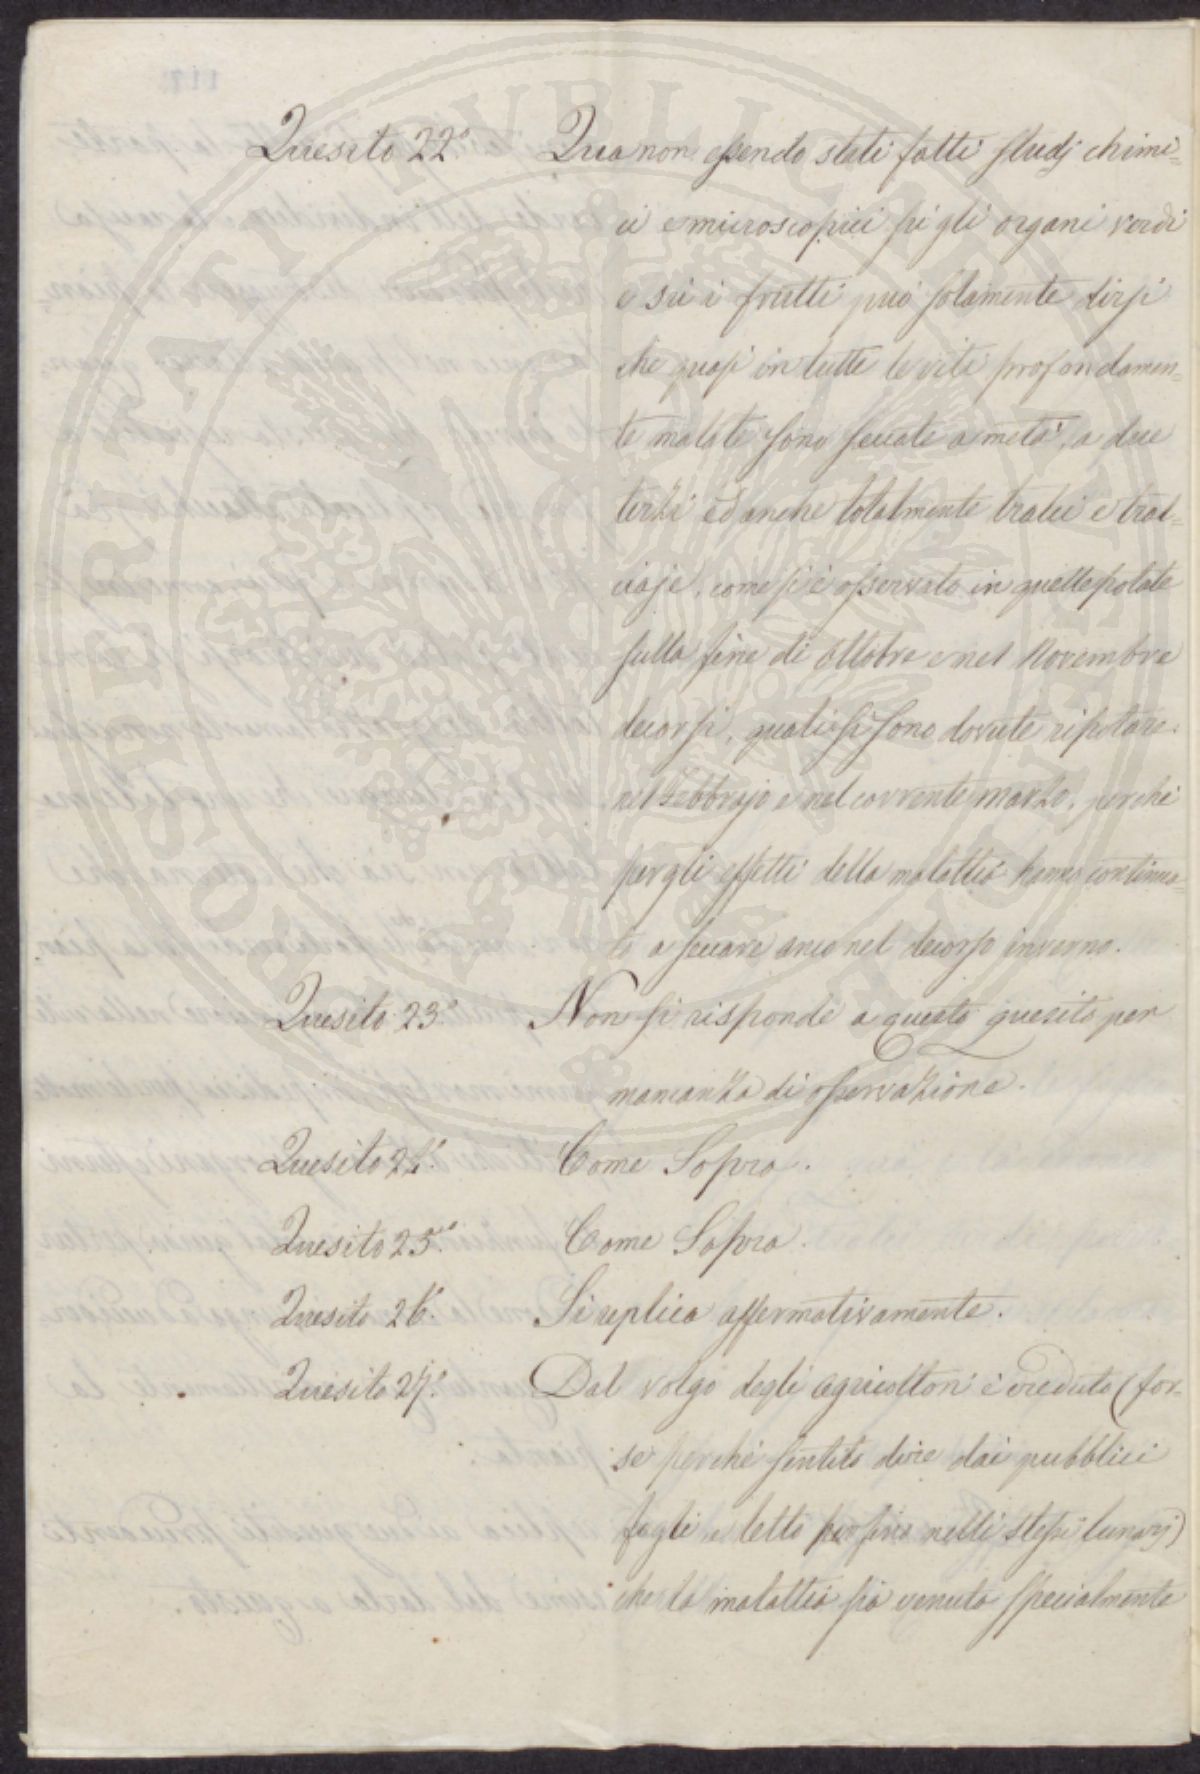 Quesito 22° Qua non essendo stati fatti studj chimi=
ci e microscopici su gli organi verdi
e su i frutti può solamente dirsi
che quasi in tutte le viti profondamen=
te malate sono seccate a metà, a due
terzi ed anche totalmente tralci e tral=
ciaje, come si è osservato in quelle potate
sulla fine di Ottobre e nel Novembre
decorsi, quali si sono dovute ripotare
nel Febbrajo e nel corrente Marzo, perché
per gli effetti della malattia hanno continua=
to a seccare anco nel decorso inverno.
Quesito 23° Non si risponde a questo quesito per
mancanza di osservazione.
Quesito 24° Come Sopra.
Quesito 25° Come Sopra.
Quesito 26° Si replica affermativamente.
Quesito 27° Dal volgo degli agricoltori è creduto (for=
se perché sentito dire dai pubblici
fogli e letto persino nelli stessi lunarj)
che la malattia sia venuta specialmente